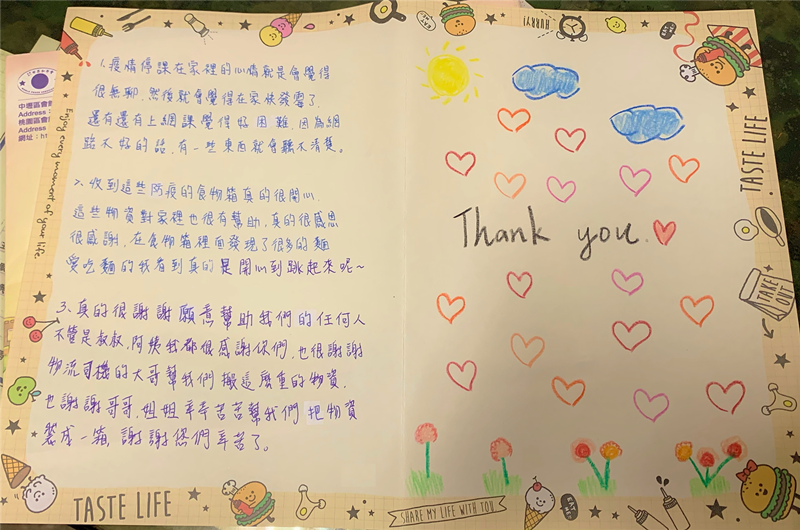 1. 疫情停課在家裡的心情就是會覺得
很無聊. 然後就會覺得在家快發霉了.
還有還有上網課覺得好困難. 因為網
路不好的話, 有一些東西就會聽不清楚。
2. 收到這些防疫的食物箱真的很開心.
這些物資對家裡也很有幫助. 真的很感恩
很感謝, 在食物箱裡面發現了很多的麵
愛吃麵的我看到真的是開心到跳起來呢~
3. 真的很謝謝願意幫助我們的任何人
不管是叔叔.阿姨我都很感謝你們, 也很謝謝
物流司機的大哥幫我們搬這麼重的物資.
也謝謝哥哥.姐姐辛辛苦苦幫我們把物資
裝成一箱, 謝謝您們辛苦了。
Thank you.
Enjoy every moment of your life.
TASTE LIFE
SHARE MY LIFE WITH YOU
TASTE LIFE
TAKE OUT
HURRY!
EAT ME!
中壢區會
Address
桃園區會
Address
網址: ht